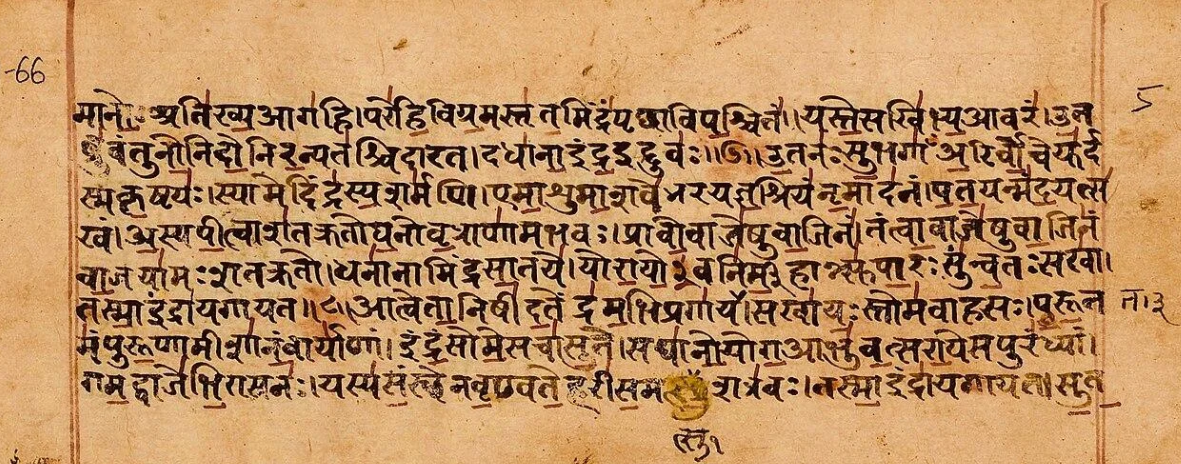 -66
5
मानो॒ अति॑ ख्य॒ आ ग॑हि । परे॑हि॒ विग्र॒मस्तृ॑त॒मिंद्रं॑ पृच्छा विप॒श्चितं॑ । यस्ते॒ सखि॑भ्य॒ आ वरं॑ । उ॒त
ब्रु॑वंतु नो॒ निदो॒ निर॒न्यत॑श्चिदारत । दधा॑ना॒ इंद्र॒ इद्दुवः॑ ॥ ७ ॥ उ॒त नः॑ सु॒भगाँ॑ अ॒रिर्वो॒चेयु॑र्द
स्म कृ॒ष्टयः॑ । स्यामेदिंद्र॑स्य॒ शर्म॑णि । एमा॒शुमा॒शवे॑ भर यज्ञ॒श्रियं॑ नृ॒माद॑नं । प॒त॒यन्मं॑द॒यत्स
खं । अ॒स्य पी॒त्वा श॑तक्रतो घ॒नो वृ॒त्राणा॑मभवः । प्रावो॒ वाजे॑षु वा॒जिनं॑ । तं त्वा॒ वाजे॑षु वा॒जिनं॑
वा॒जया॑मः शतक्रतो । धना॑नामिंद्र सा॒तये॑ । यो रा॒यो३॒॑वनि॑र्म॒हान्त्सु॑पा॒रः सु॑न्व॒तः सखा॑ ।
तस्मा॒ इंद्रा॑य गायत ॥ ८ ॥ आ त्वेता॒ नि षी॑द॒तेंद्र॑म॒भि प्र गा॑यत । सखा॑यः॒ स्तोम॑वाहसः । पु॒रू॒त
त । ३
मं॑ पुरू॒णामीशा॑नं॒ वार्या॑णां । इंद्रं॒ सोमे॒ सचा॑ सु॒ते । स घा॑ नो॒ योग॒ आ भु॑व॒त्स रा॒ये स पुरं॑ध्यां ।
गम॒द्वाजे॑भि॒रा स नः॑ । यस्य॑ सं॒स्थे न वृ॒ण्वते॒ हरी॑ स॒मत्सु॒ शत्र॑वः । तस्मा॒ इंद्रा॑य गायत । सु॒त
त्सु १